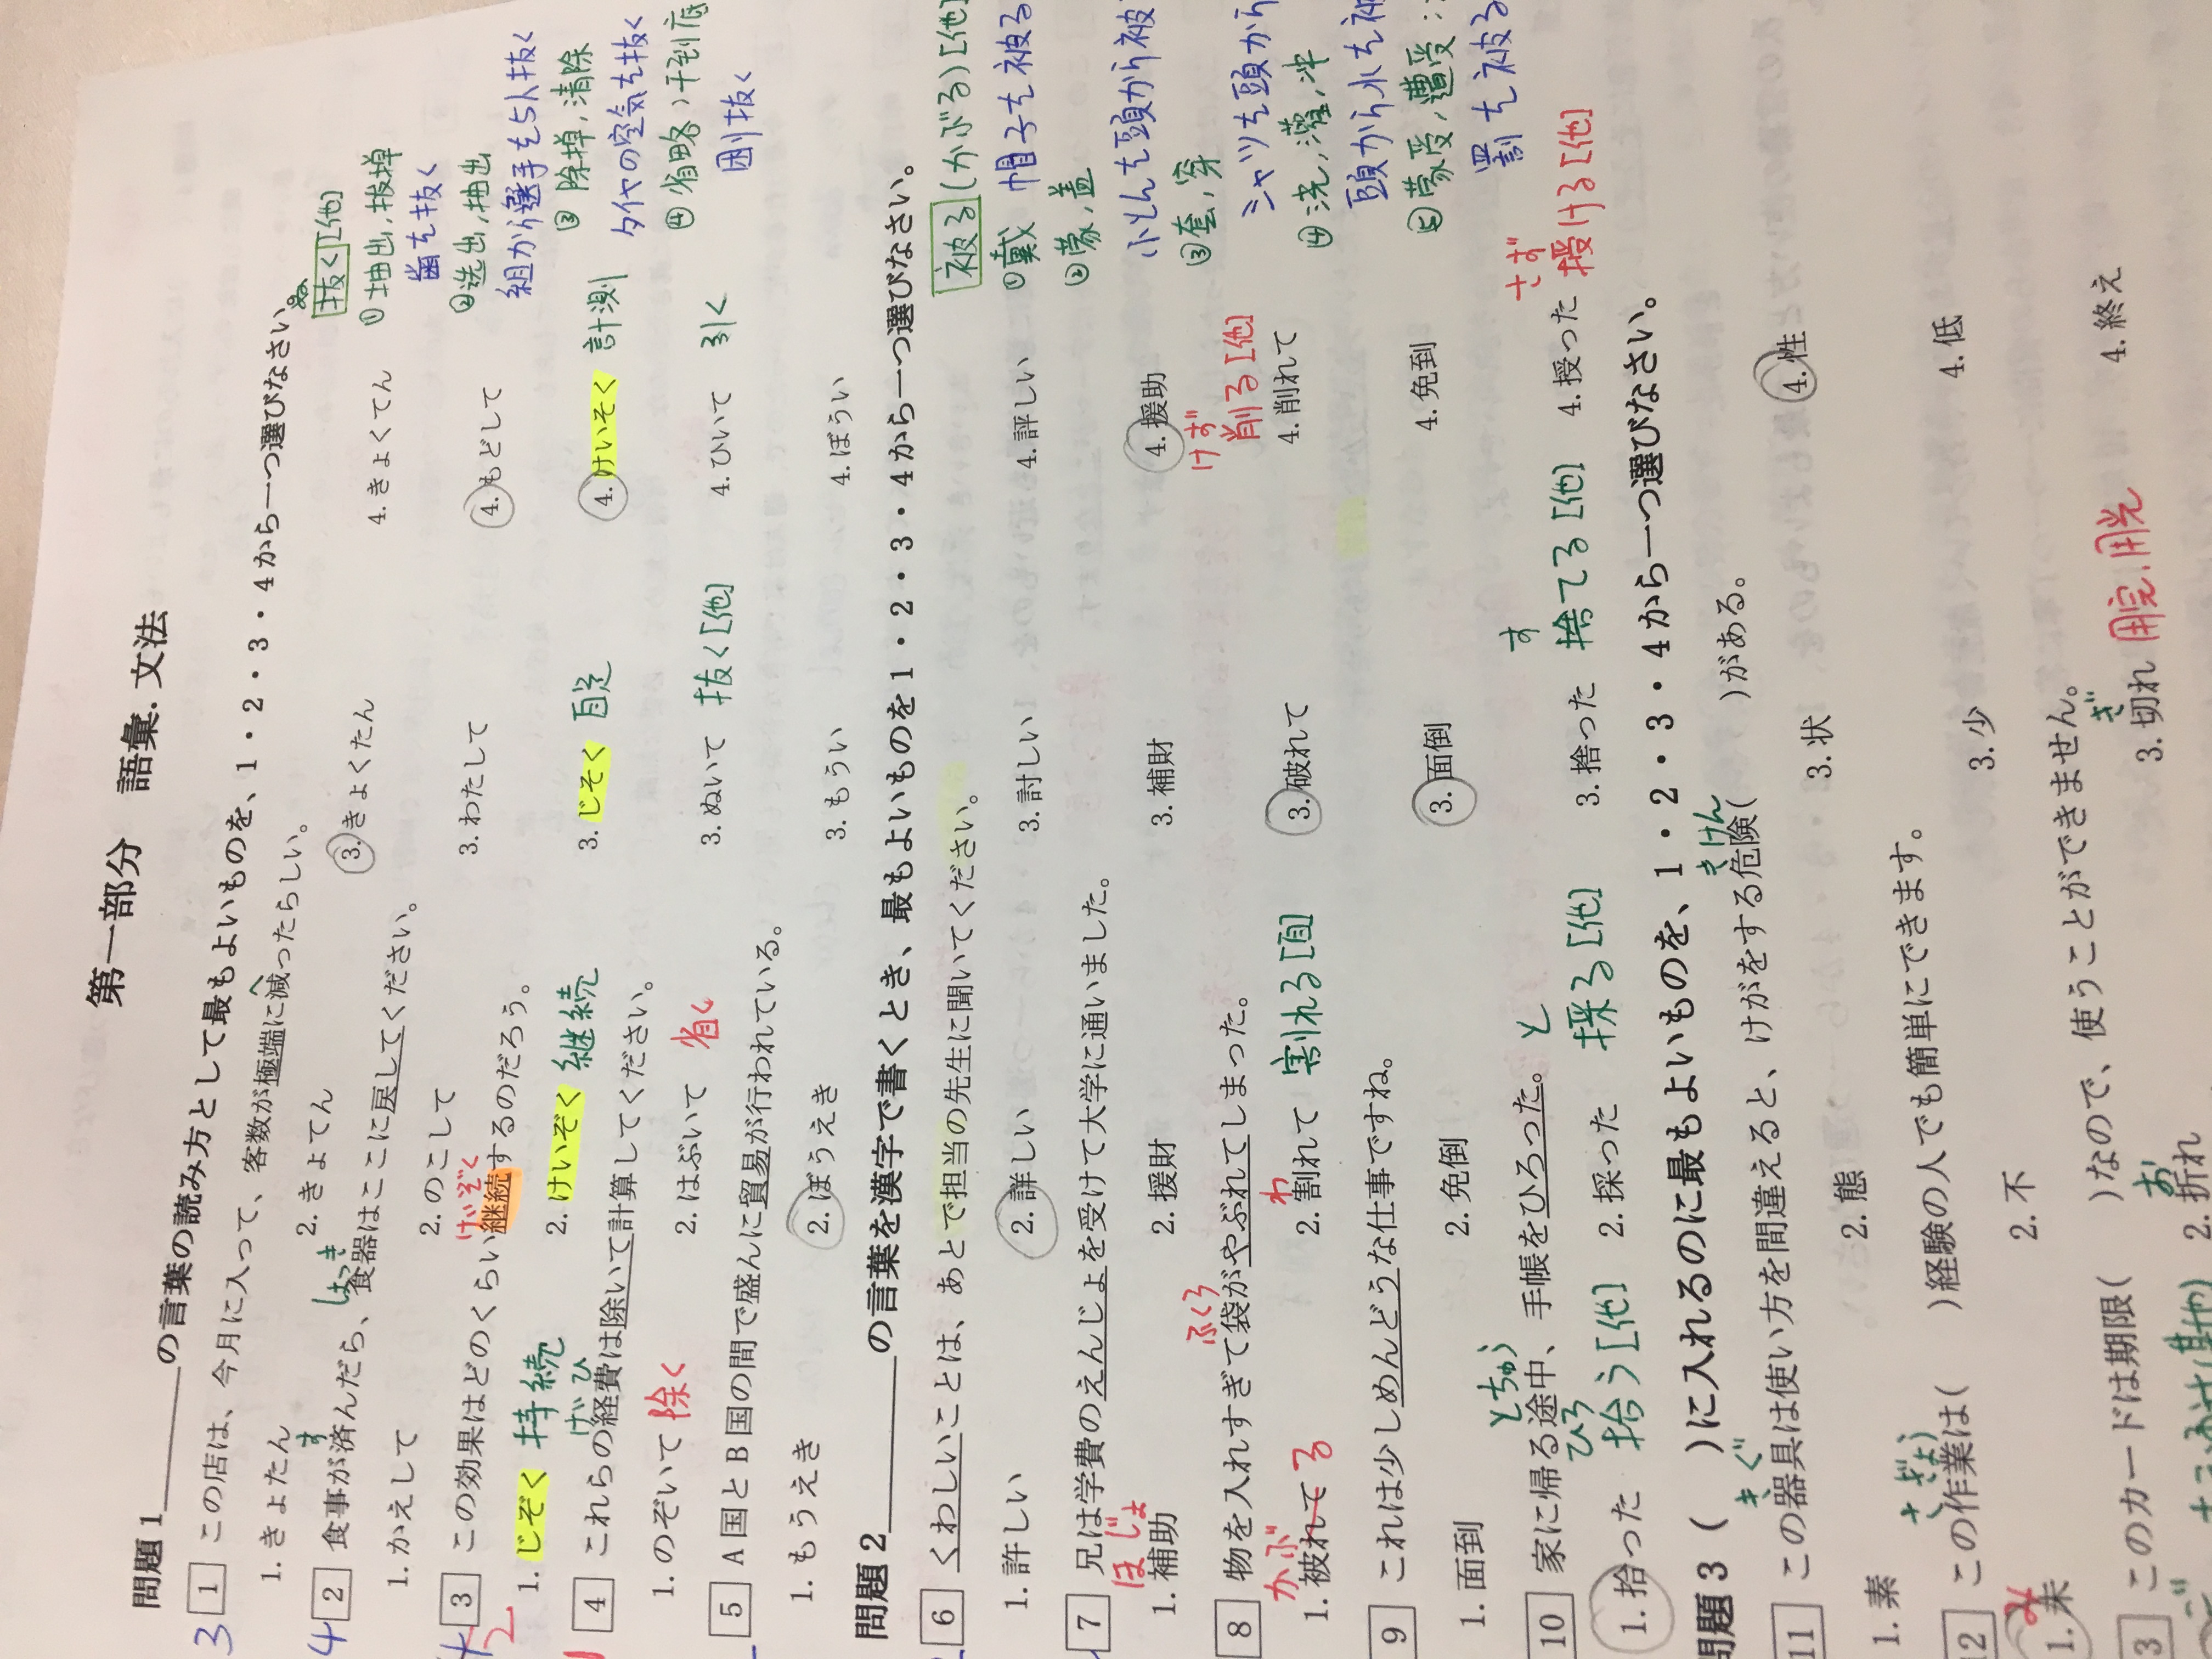 第一部分 語彙.文法
問題1 の言葉の読み方として最もよいものを、1・2・3・4から一つ選びなさい。
3 1 この店は、今月に入って、客数が極端に減ったらしい。
へ
1. きょたん 2. きょてん 3. きょくたん 4. きょくてん
4 2 食事が済んだら、食器はここに戻してください。
す しょっき
1. かえして 2. のこして 3. わたして 4. もどして
4 2 3 この効果はどのくらい継続するのだろう。
けいぞく
1. じぞく 持続 2. けいぞく 継続 3. じそく 時速 4. けいそく 計測
1 4 これらの経費は除いて計算してください。
けいひ
1. のぞいて 除く 2. はぶいて 省く 3. ぬいて 抜く[他] 4. ひいて 引く
5 A国とB国の間で盛んに貿易が行われている。
1. もうえき 2. ぼうえき 3. もうい 4. ぼうい
ぬ
抜く[他]
① 抽出,拔掉
歯を抜く
② 选出,抽出
組から選手を5人抜く
③ 除掉,清除
タイヤの空気を抜く
④ 省略;干到底
困り抜く
問題2 の言葉を漢字で書くとき、最もよいものを1・2・3・4から一つ選びなさい。
6 くわしいことは、あとで担当の先生に聞いてください。
1. 許しい 2. 詳しい 3. 討しい 4. 評しい
7 兄は学費のえんじょを受けて大学に通いました。
ほじょ
1. 補助 2. 援財 3. 補財 4. 援助
8 物を入れすぎて袋がやぶれてしまった。
ふくろ
かぶ わ けず
1. 被れて る 2. 割れて 割れる[自] 3. 破れて 4. 削れて 削る[他]
9 これは少しめんどうな仕事ですね。
1. 面到 2. 免倒 3. 面倒 4. 免到
10 家に帰る途中、手帳をひろった。
とちゅう
ひろ と す さず
1. 拾った 拾う[他] 2. 採った 採る[他] 3. 捨った 捨てる[他] 4. 授った 授ける[他]
被る(かぶる)[他]
① 戴
帽子を被る
② 蒙,盖
ふとんを頭から被
③ 套,穿
シャツを頭から
④ 洗,灌,冲
頭から水を被
⑤ 蒙受,遭受
罰を被る
問題3 ( )に入れるのに最もよいものを、1・2・3・4から一つ選びなさい。
11 この器具は使い方を間違えると、けがをする危険( )がある。
きぐ きけん
1. 素 2. 態 3. 状 4. 性
12 この作業は( )経験の人でも簡単にできます。
さぎょう
み
1. 未 2. 不 3. 少 4. 低
3 このカードは期限( )なので、使うことができません。
お ぎ
2. 折れ 3. 切れ 4. 終え